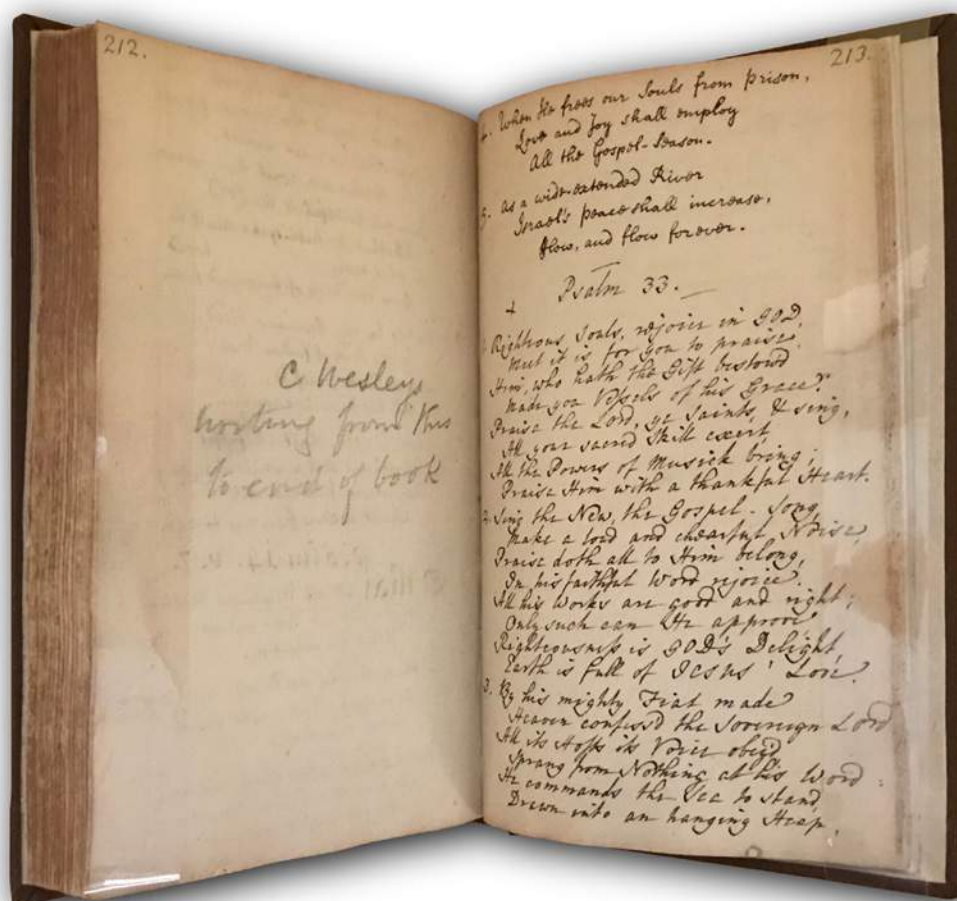 212.
C Wesley
writing from this
to end of book
213.
4. When He frees our Souls from prison,
Love and Joy shall employ
All the Gospel-Season.
5. As a wide-extended River
Israel's peace shall increase,
Flow, and flow forever.
Psalm 33.
1. Righteous Souls, rejoice in GOD,
Meet it is for you to praise
Him, who hath the Gift bestow'd
Made you Vessels of his Grace:
Praise the Lord, ye saints, & sing,
All your sacred Skill exert,
All the Powers of Musick bring;
Praise Him with a thankful Heart.
2. Sing the New, the Gospel-Song,
Make a loud and chearful Noise,
Praise doth all to Him belong,
In his faithful Word rejoice.
All his Works are good and right;
Only such can He approve
Righteousness is GOD's Delight,
Earth is full of JESUS' Love.
3. By his mighty Fiat made
Heaven confess'd the Sovereign Lord
All its Hosts its Voice obey'd
Sprang from Nothing at his Word:
He commands the Sea to stand,
Drawn into an hanging Heap,